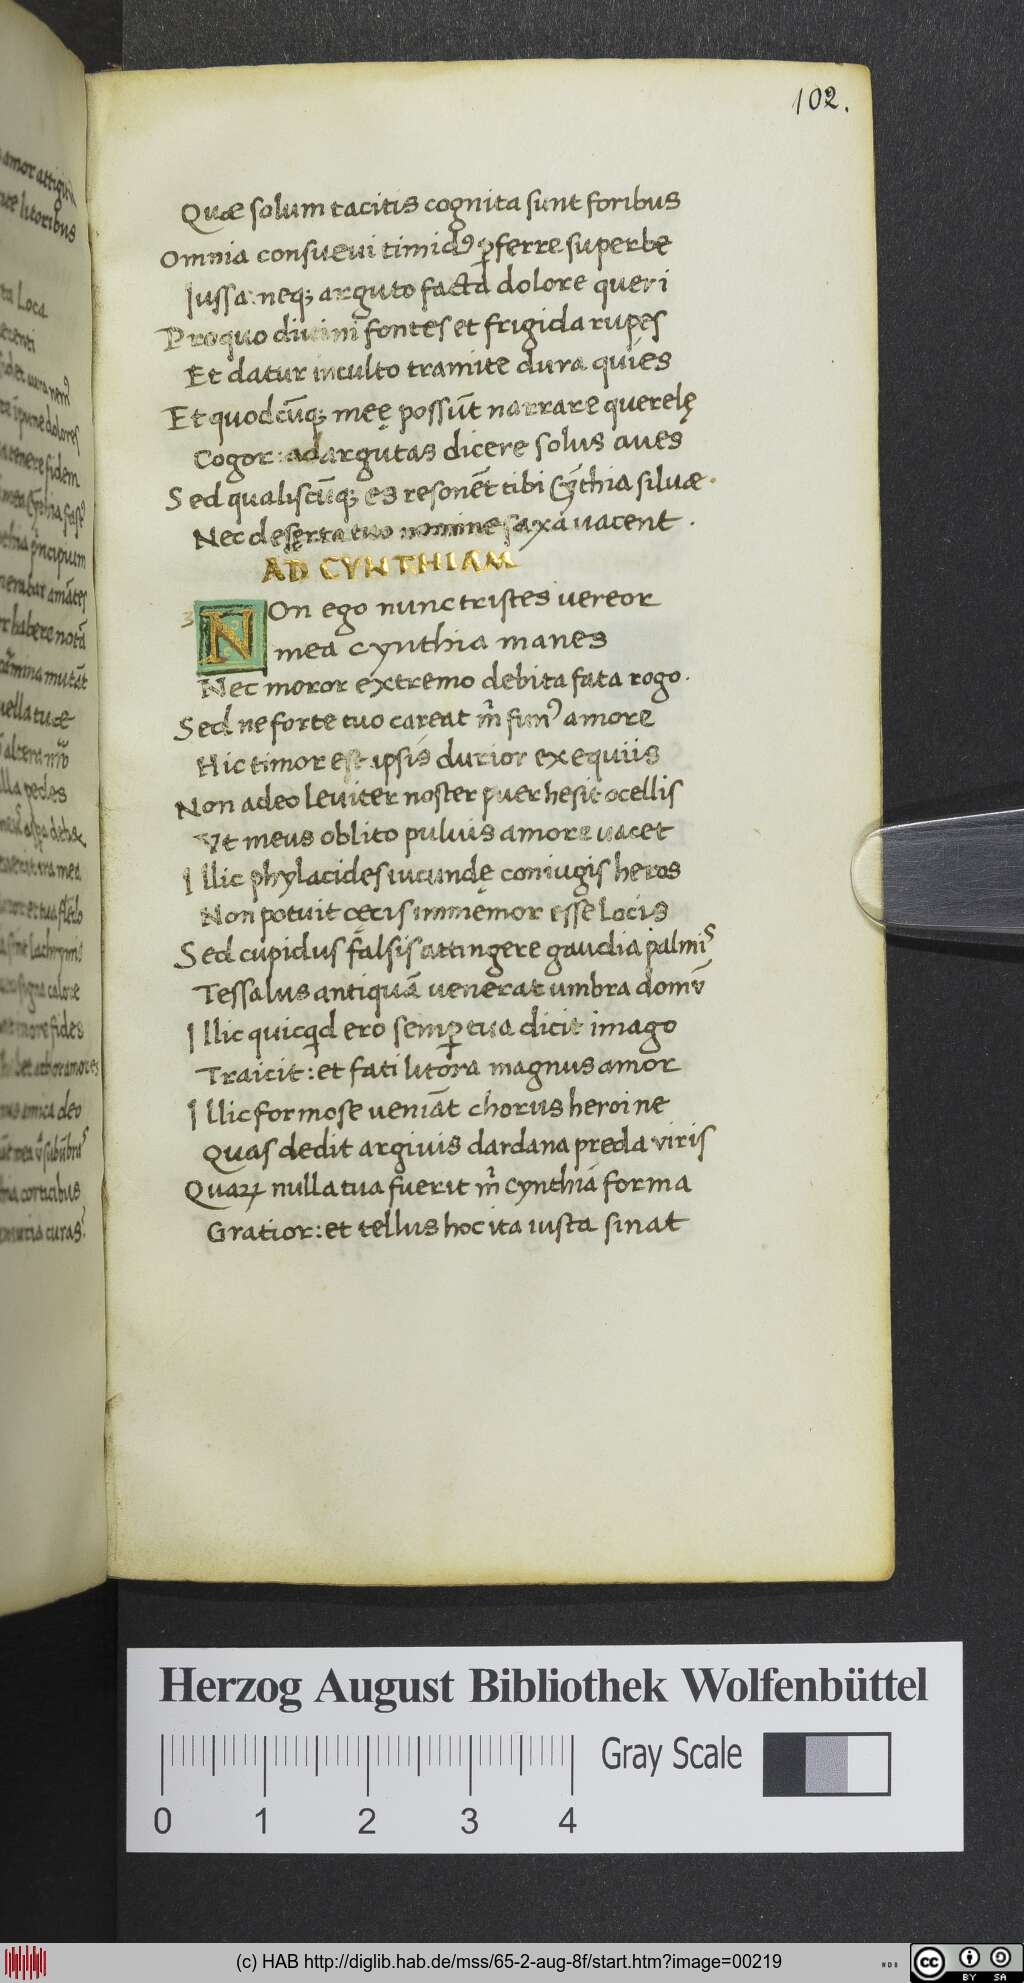 102.
Quæ solum tacitis cognita sunt foribus
Omnia consuevi timidꝰ ꝑferre superbe
Iussa: neqꝫ arguto facta dolore queri
Pro quo divini fontes et frigida rupes
Et datur inculto tramite dura quies
Et quodcūqꝫ meę possūt narrare querelę
Cogor: ad argutas dicere solus aues
Sed qualiscūqꝫ es resonēt tibi Cȳthia siluæ.
Nec deserta tuo nomine saxa uacent.
AD CYNTHIAM
NOn ego nunc tristes uereor
mea cynthia manes
Nec moror extremo debita fata rogo.
Sed ne forte tuo careat m̄ funꝰ amore
Hic timor est ipsis durior exequiis
Non adeo leuiter noster puer hesit ocellis
Vt meus oblito puluis amore uacet
Illic phylacides iucundę coniugis heros
Non potuit cęcis immemor esse locis
Sed cupidus falsis attingere gaudia palmis
Tessalus antiquā venerat umbra domū
Illic quicqd ero semꝑ tua dicit imago
Traicit: et fati litora magnus amor
Illic formose veniāt chorus heroine
Quas dedit argiuis dardana preda viris
Quaꝝ nulla tua fuerit m̄ cynthia forma
Gratior: et tellus hoc ita iusta sinat
Herzog August Bibliothek Wolfenbüttel
Gray Scale
0 1 2 3 4
(c) HAB http://diglib.hab.de/mss/65-2-aug-8f/start.htm?image=00219
cc BY SA